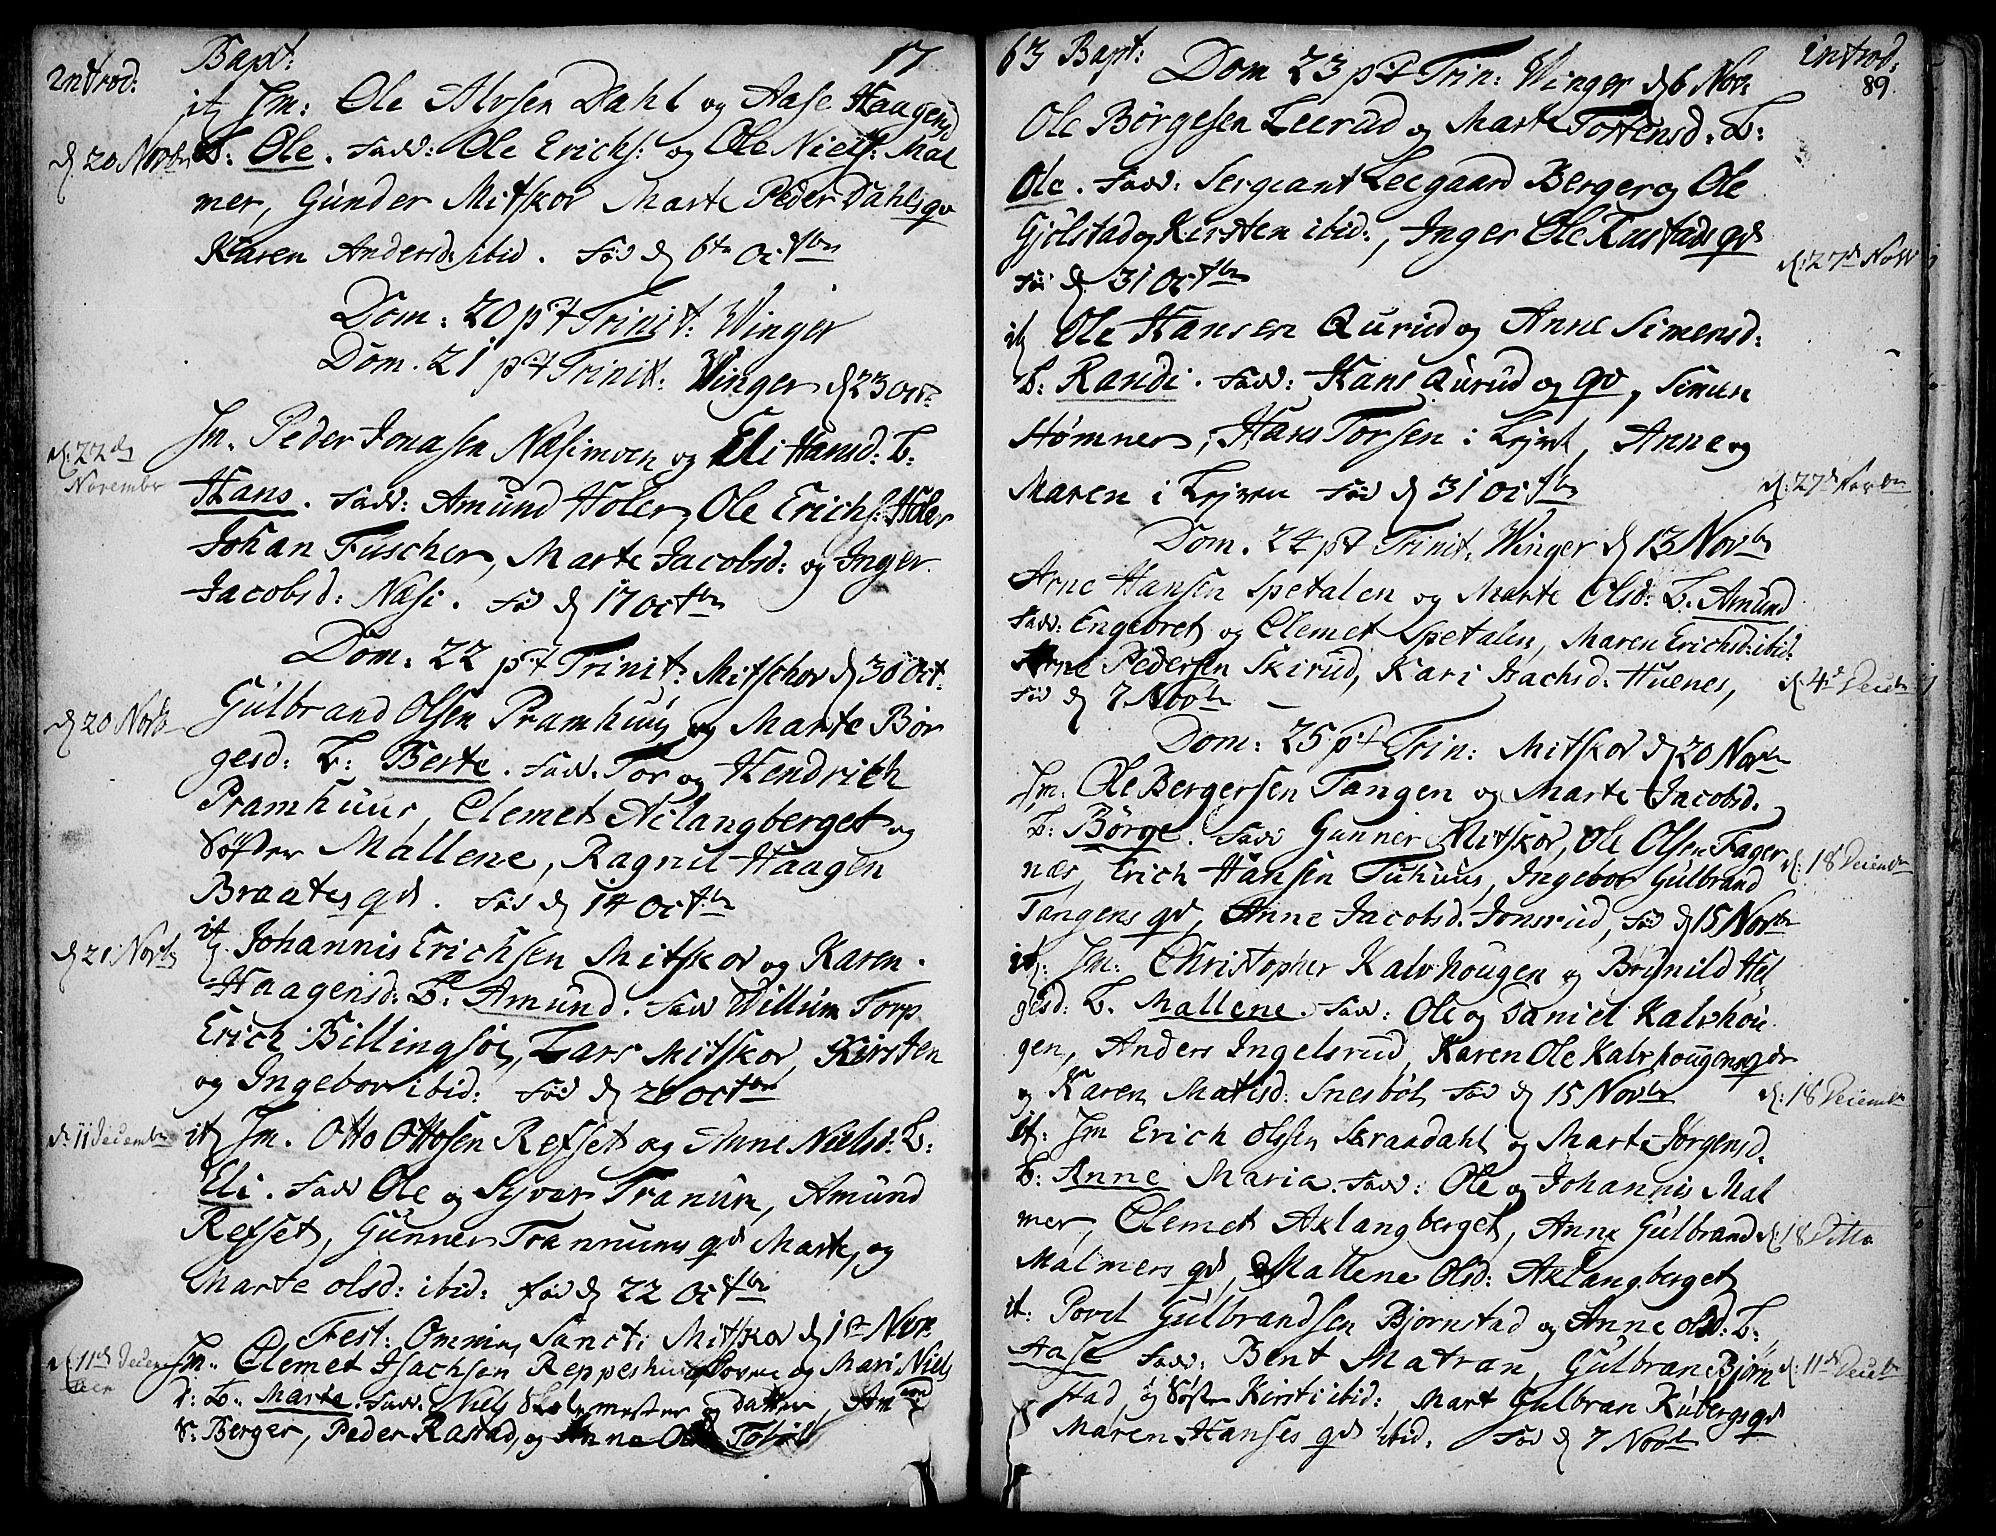 Introd:
Bapt:
17
it Jm: Ole Alvsen Dahl og Aase Haagensd
d 20 Novbr
B: Ole. Fadd: Ole Erichs: og Ole Niels: Mal
mer, Gunder Mitskov Marte Peder Dahls qv
Karen Andersd: ibid. Fød d 6te Octbr
Dom: 20 p: Trinit: Winger
Dom. 21 p: Trinit: Winger d 23 Oct:
Jm. Peder Jonasen Næsimoen og Eli Hansd: B:
d: 22de
November
Hans. Fadd: Amund Holer, Ole Erichs: Holer
Johan Fuscher, Marte Jacobsd: og Inger
Jacobsd: Næsi. Fød d 17 Octbr
Dom: 22 p: Trinit: Mitschov d 30 Oct:
d 20 Novb
Gulbrand Olsen Pramhuus og Marte Bør
gesd: B: Berte. Fadd. Tor og Hendrich
Pramhuus, Clemet Aclangberget og
Søster Mallene, Ragnil Haagen
Braates qv. Fød d 14 Octbr
d 21 Novb
it Johannis Erichsen Mitskov og Karen
Haagensd: B: Amund. Fadd Willum Torp
Erich Billingsøe, Lars Mitskov, Kirsten
og Ingebor ibid: Fød d 26 Octbr
d: 11 Decembr
it Jm. Otto Ottosen Refset og Anne Nielsd: B:
Eli. Fadd Ole og Syver Tranum, Amund
Refset, Gunner Trannums qv Marte, og
Marte Olsd: ibid: Fød d 22 Octbr
Fest: Omnium Sancti Mitskov d 1st Nov:
d 11de Decem
ber
Jm. Clemet Isachsen og Mari Niels
d: B. Marte. Fadd: Niels Skolemester og Datter,
S: Berger, Peder Rastad, og Anne
63 Bapt:
Introd:
89.
Dom 23 p: Trin: Winger d 6 Nov:
Ole Børgesen Leerud og Marte Torstensd. B:
Ole. Fadd: Sergeant Leegaard Berger og Ole
Gjølstad og Kirsten ibid:, Inger Ole Rastads qv
d: 27de Nov
Fød d 31 Octbr
it Ole Hansen Qurud og Anne Simensd:
B: Randi. Fadd: Hans Qurud og qv, Simen
Stømner, Hans Torsen i , Anne og
Maren i Fød d 31 Octbr
d: 27de Novbr
Dom. 24 p: Trinit. Winger d 13 Novbr
Arne Hansen Spetalen og Marte Olsd: B. Amund
Fadd: Engebret og Clemet Spetalen, Maren Erichsd: ibid:
Arne Pedersen Skirud, Kari Isachsd: Huenes,
d: 4de Decbr
Fød d 7 Novbr
Dom: 25 p: Trin: Mitskov d 20 Novbr
Jm. Ole Bergersen Tangen og Marte Jacobsd.
B: Børge. Fadd Gunner Mitskov, Ole Olsen Fager
d: 18 Decembr
næs, Erich Hansen Tuhuus, Ingebor Gulbrand
Tangens qv, Anne Jacobsd. Jonsrud, Fød d 15 Novbr
it: Jm: Christopher Kalvhougen og Brynild Hel
gesd: B. Mallene. Fadd: Ole og Daniel Kalvhou
gen, Anders Ingelsrud, Karen Ole Kalvhougens qv
og Karen Matisd: Snesbøl Fød d 15 Novbr
d: 18 Decembr
it: Jm Erich Olssen Skraadahl og Marte Jørgensd.
B: Anne Maria. Fadd: Ole og Johannis Mal
mer, Clemet Aklangberget, Anne Gulbrand
d: 18 Ditto
Malmers qv, Mallene Olsd: Aklangberget
it. Povel Gulbrandsen Bjørnstad og Anne Olsd: B.
Aase Fadd: Bent Matran, Gulbran Bjørn
d: 11de Decbr
stad, og Søster Kirsti ibid:, Mart Gulbran Kubergs qv
Maren Hanses qv ibid: Fød d 7 Novbr